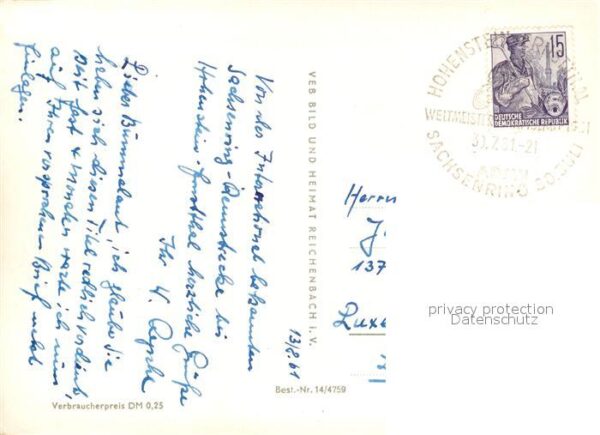 Von der International bekannten
Sachsenring-Rennstrecke bei
Hohenstein-Ernstthal herzliche Grüße
Ihr W.
Lieber Bummelant, ich glaube Sie
haben sich diesen Titel redlich verdient,
Seit fast 4 Monaten warte ich nun
auf Ihren versprochenen Brief nebst
Einlagen.
13/8.61
VEB BILD UND HEIMAT REICHENBACH i. V.
Best.-Nr. 14/4759
Verbraucherpreis DM 0,25
Herrn
J
137
Luxe
15
DEUTSCHE
DEMOKRATISCHE REPUBLIK
HOHENSTEIN-ERNSTTHAL
30.7.61-21
SACHSENRING 30. JULI
privacy protection
Datenschutz